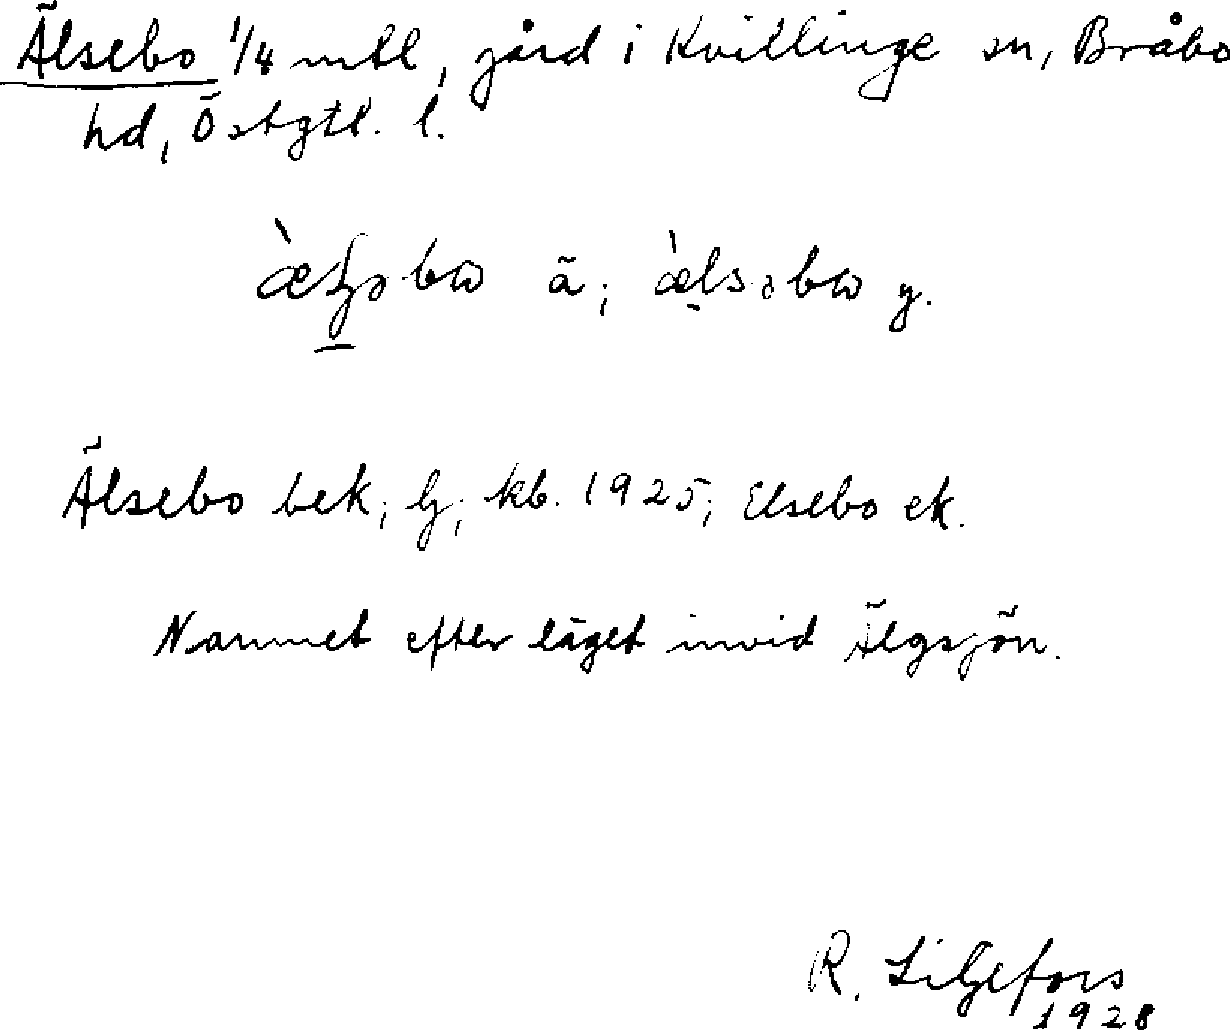 Älsebo 1/4 mtl, gård i Kvillinge sn, Bråbo
hd, Östgtl. l.
bω ä; æ̀lsəbω y.
Älsebo bek; lj; kb. 1925; Elsebo ek.
Namnet efter läget invid Älgsjön.
R. Liljefors
1928